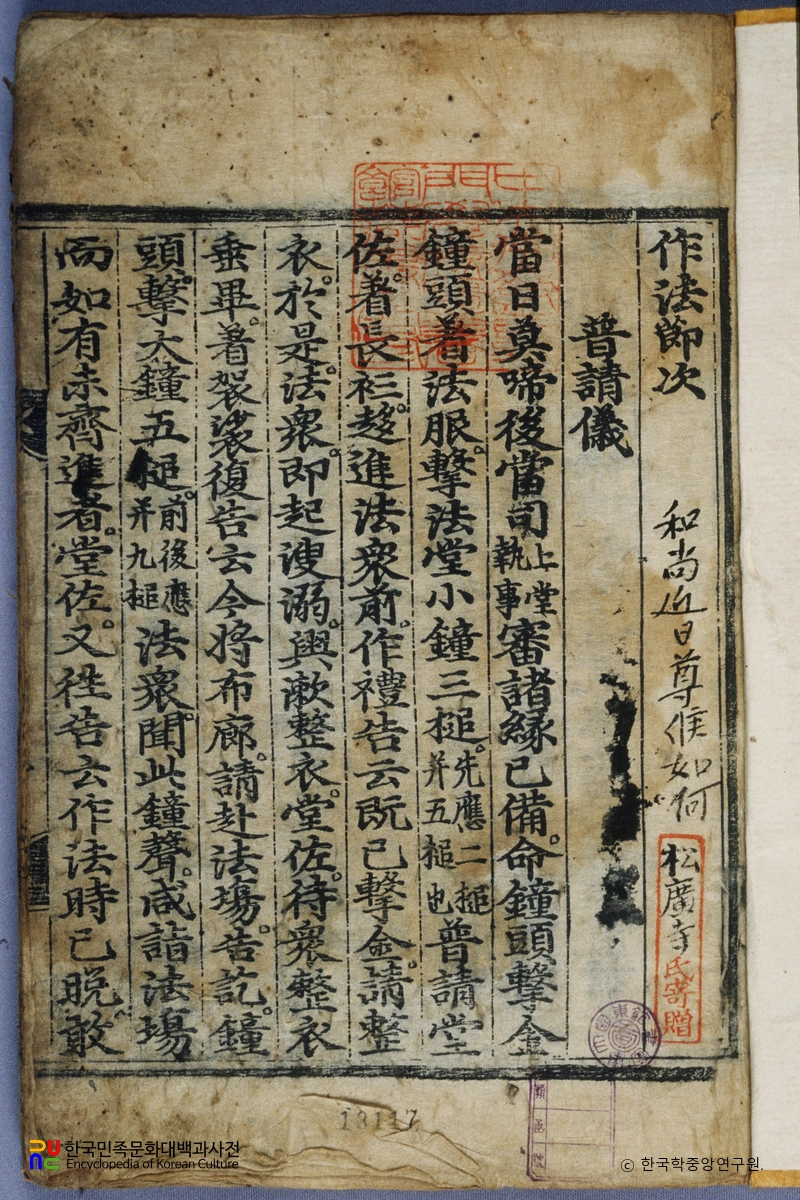 作法節次
和尚近日尊候如何
松廣寺氏寄贈
普請儀
當日奠啼後當司上堂執事審諸緣已備命鐘頭擊金
鐘頭着法服擊法堂小鐘三搥先應二搥并五搥也普請堂
佐着長衫趍進法衆前作禮告云旣已擊金請整
衣於是法衆即起溲溺與漱整衣堂佐待衆整衣
垂畢着袈裟復告云今將布廊請赴法場告訖鐘
頭擊大鐘五搥前後應并九搥法衆聞此鐘聲咸詣法場
而如有未齊進者堂佐又徃告云作法時已晩敢
13117
한국민족문화대백과사전
Encyclopedia of Korean Culture
© 한국학중앙연구원.